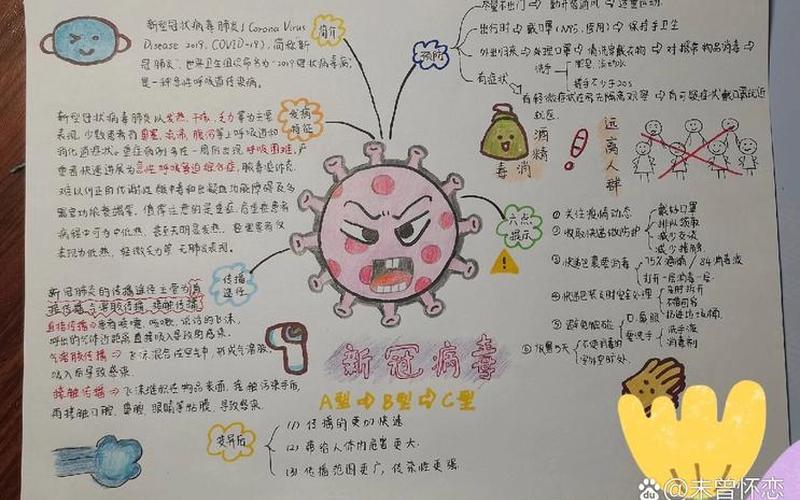 新型冠状病毒肺炎(Corona Virus
Disease 2019, COVID-19), 简称"新
冠肺炎", 世界卫生组织命名为"2019冠状病毒病"
是一种急性呼吸道传染病。
简介
新型冠状病毒肺炎以发热、干咳、乏力等为主要
表现, 少数患者有鼻塞、流涕、腹泻等上呼吸道和
消化道症状。重症病例多在一周后出现呼吸困难, 严
重者快速进展为急性呼吸窘迫综合征、脓毒症休克、
难以纠正的代谢性酸中毒和出凝血功能障碍及多
器官功能衰竭等。值得注意的是重症、危重症患者
病程中可为中低热, 甚至无明显发热。轻重患者仅
表现为低热、轻微乏力等 无肺炎表现。
发病
特征
新冠肺炎的传播途径主要为直
接传播、气溶胶传播、接触传播
直接传播⇒患者喷嚏、咳嗽、说话的飞沫,
呼出的气体近距离直接吸入导致的感染。
气溶胶传播⇒飞沫混合在空气中, 形成气溶胶,
吸入后导致感染。
接触传播⇒飞沫沉积在物品表面, 接触污染手后,
再接触口腔、鼻腔、眼睛等粘膜, 导致感染。
传播
途径
预防
尽量不出门→勤开窗通风→适量运动
出行时→戴口罩(N95,医用)→保持手卫生
外出归来→处理口罩→清洗穿戴衣物→对携带物品消毒
洗手
肥皂、流动水
搓手不少于20s
有症状
酒精
消毒
远离人群
六点
提示
① 关注疫情动态
② 收取快递做防护
戴好口罩
排队领取
减少交谈
减少接触
③ 快递包裹要消毒
75%酒精 / 84消毒液
打开一层消毒一层
④ 快递包装及时安全处理
及时拆开
不留可名
⑤ 避免触碰
口、鼻、眼
要洗手
洗手液
消毒剂
新冠病毒
A型⇒B型⇒C型
变异后
(1) 传播的更加快速
(2) 带给人体的危害更大.
(3) 传播范围更广, 传染性更强.
Bai du @未曾怀恋